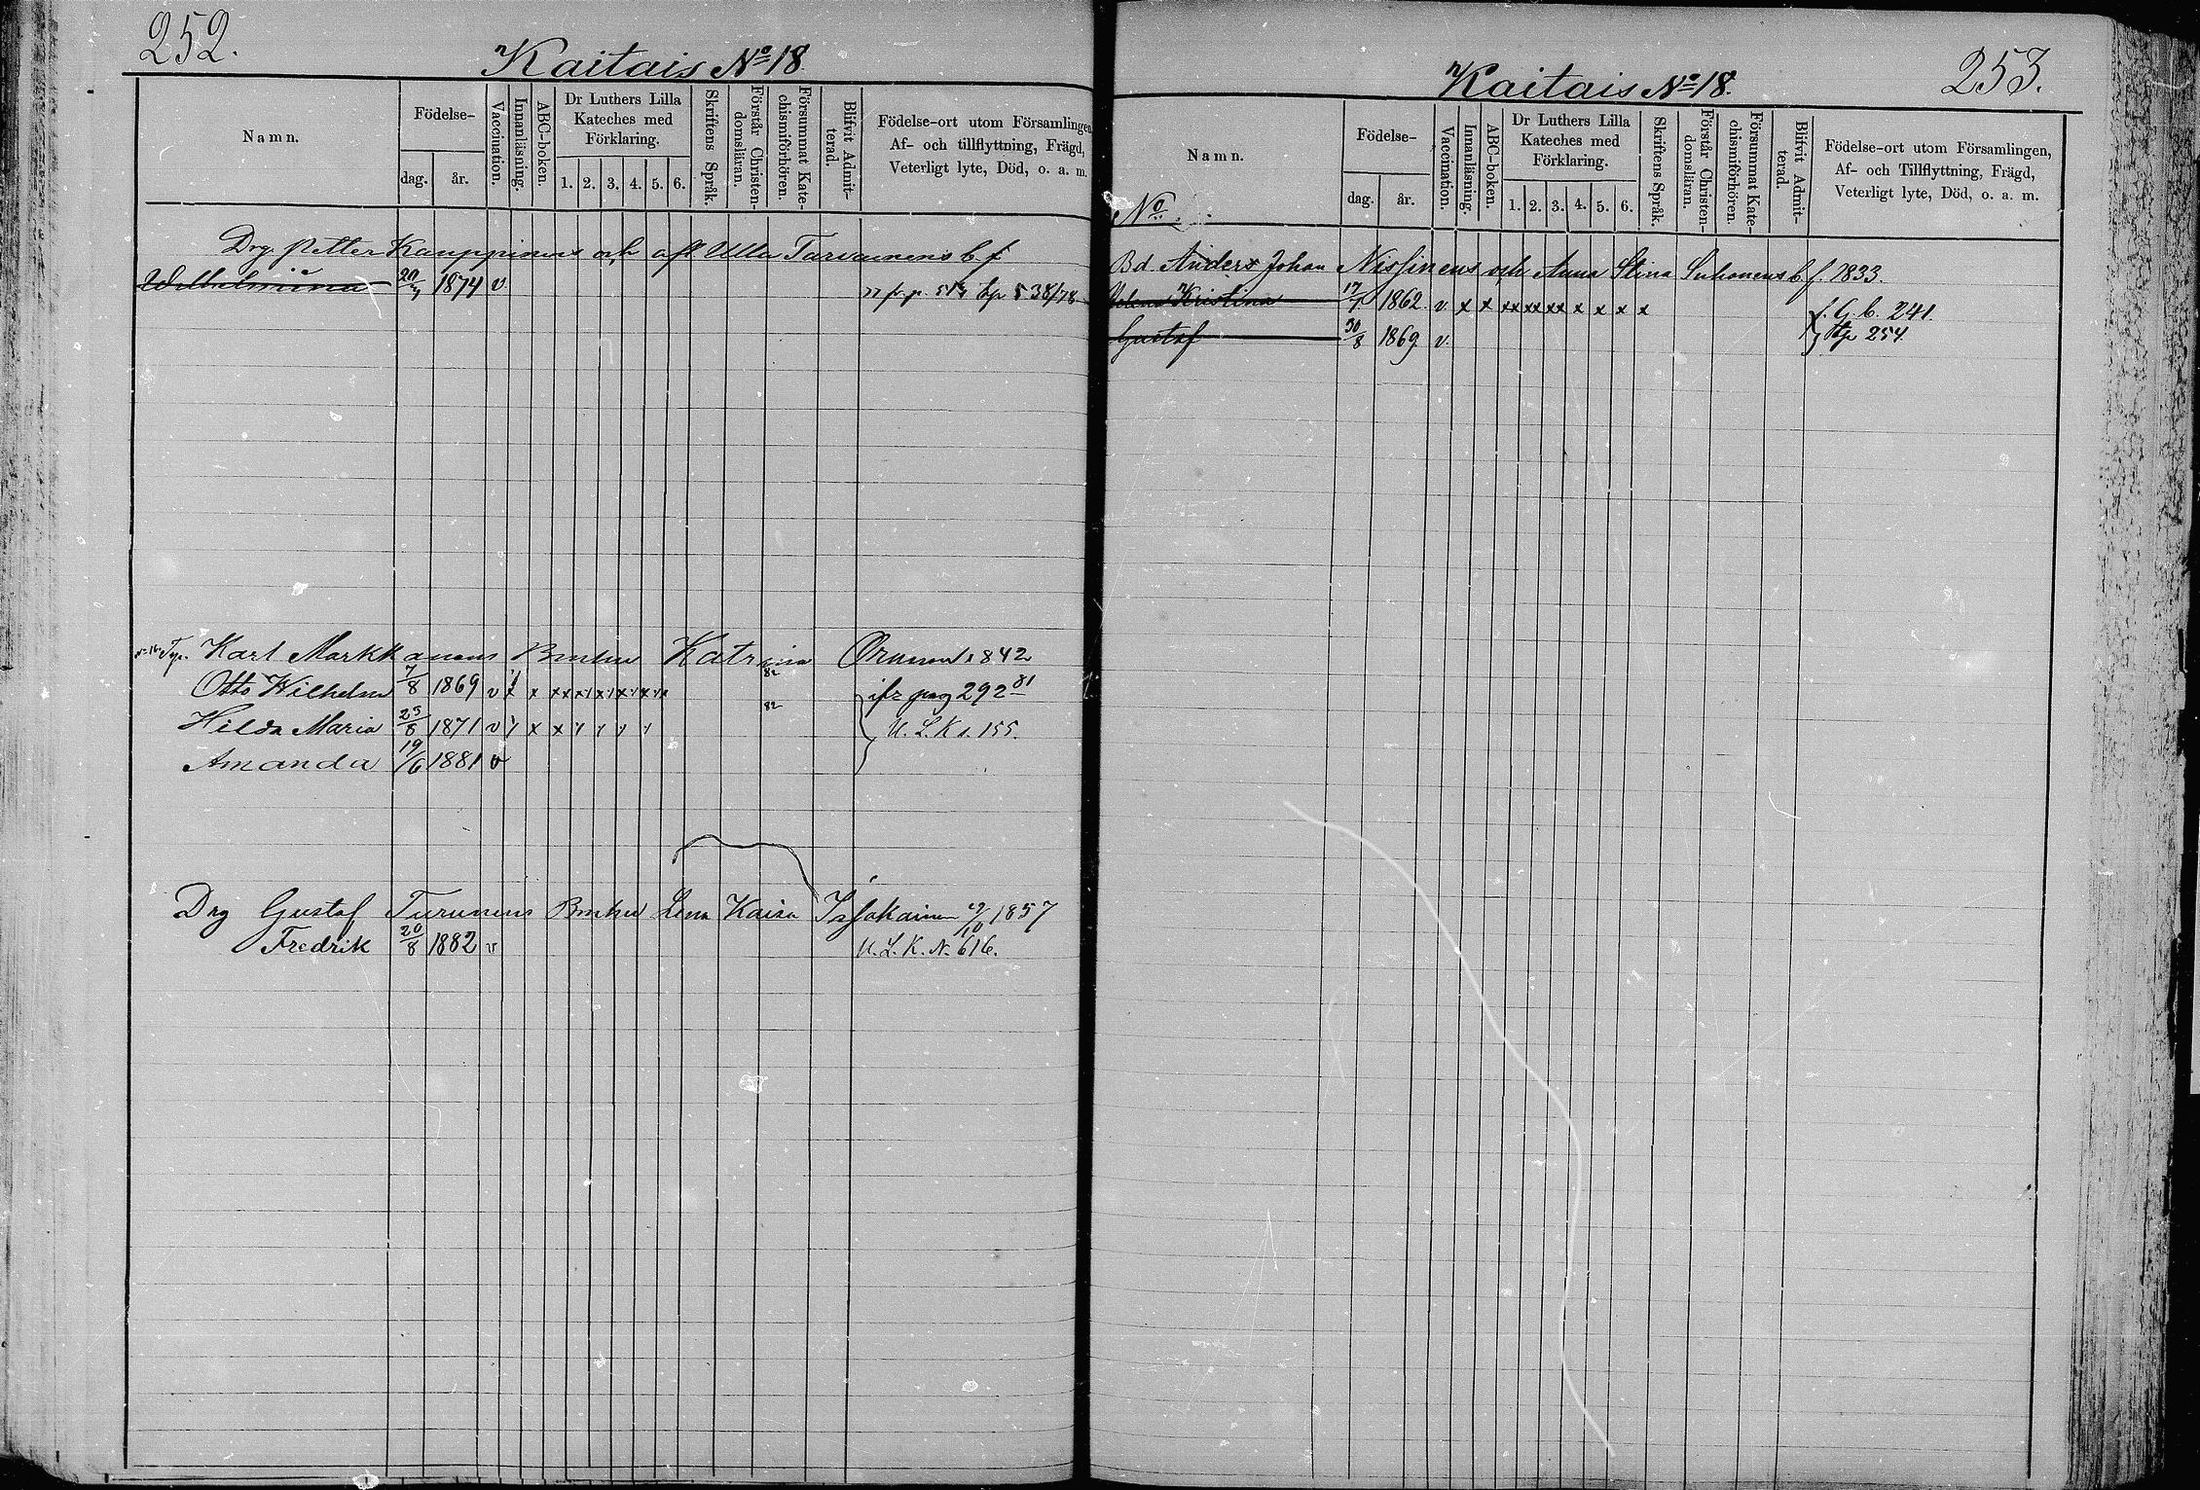 252.
Kaitais No 18.
Namn.
Födelse-
dag.
år.
Vaccination.
Innanläsning.
ABC-boken.
Dr Luthers Lilla
Kateches med
Förklaring.
1. 2. 3. 4. 5. 6.
Skriftens Språk.
Förstår Christen-
domsläran.
Försummat Kate-
chismiförhören.
Blifvit Admit-
terad.
Födelse-ort utom Församlingen
Af- och tillflyttning, Frägd,
Veterligt lyte, Död, o. a. m.
Drg. Petter Kauppinens och afl Ulla Tarvainens b. f
Wilhelmina 1874 v. 538/78
Karl Markkanens Enka Katrina 1842
Otto Wilhelm 7/8 1869 v x x x x x x x x 82 ifr pag 292 81
Hilda Maria 25/8 1871 v x x x 82 U. L. K s. 155.
Amanda 19/6 1881 v
Drg Gustaf Turunens Enka Lena Kaisa 1857
Fredrik 20/8 1882 v U. L. K. N. 616.
253.
Kaitais No 18.
Namn.
Födelse-
dag.
år.
Vaccination.
Innanläsning.
ABC-boken.
Dr Luthers Lilla
Kateches med
Förklaring.
1. 2. 3. 4. 5. 6.
Skriftens Språk.
Förstår Christen-
domsläran.
Försummat Kate-
chismiförhören.
Blifvit Admit-
terad.
Födelse-ort utom Församlingen,
Af- och Tillflyttning, Frägd,
Veterligt lyte, Död, o. a. m.
No
Bd. Anders Johan Nissinens och Anna Stina Suhonens b. f. 1833.
Helena Kristina 17/1 1862 v x x x x x x x x x x x f. G. b. 241.
Gustaf 30/8 1869 v. 254.